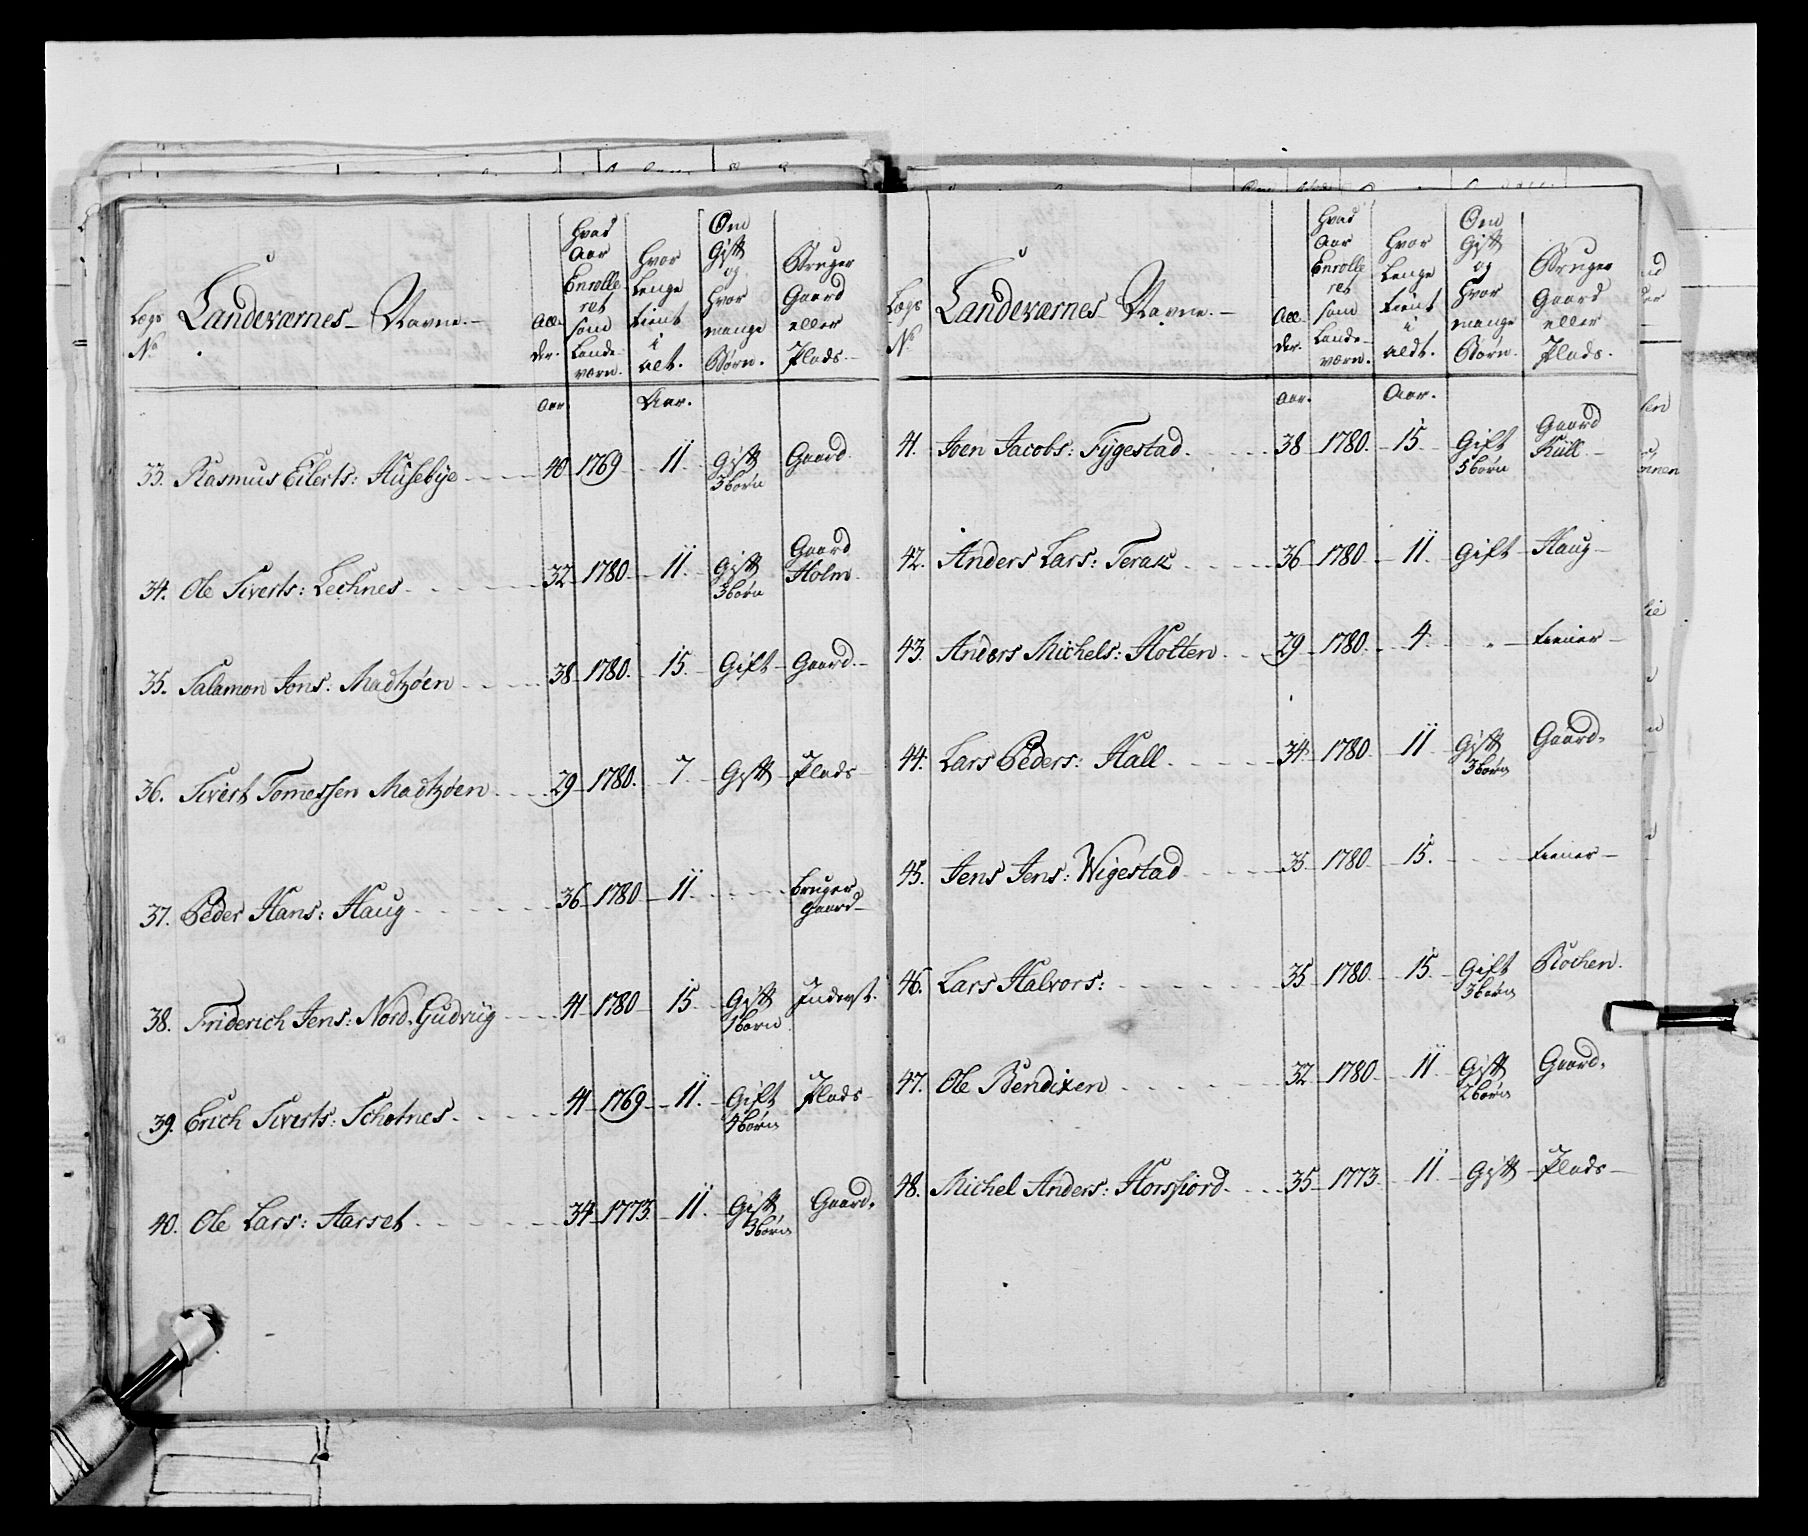 Lægs No Landeværnes Navne.- Alder. Hvad Aar Enrolleret som Landeværn. Hvor Lenge tient i alt. Om Gift og hvor mange Børn. Bruger Gaard eller Plads.
Aar. Aar.
33. Rasmus Eilerts: Husebye 40 1769 11 Gift 3 børn Gaard
34. Ole Siverts: Lechnes 32 1780 11 Gift 3 børn Gaard Holm
35. Salamon Jons: Madtzøen 38 1780. 15 Gift Gaard.
36. Sivert Tomessen Madtzøen 29 1780. 7. Gift Plads
37. Peder Hans: Haug 36 1780 11 bruger Gaard
38. Friderich Jens: Nord. Gudvüg 41 1780 15 Gift 1 børn Inderst.
39. Erich Siverts: Schotnes 41 1769 11. Gift 4 børn Plads
40. Ole Lars: Aarset 34 1773 11. Gift 3 børn Gaard.
Lægs No Landeværnes Navne.- Alder. Hvad Aar Enrolleret som Landeværn. Hvor Lenge tient i aldt. Om Gift og hvor mange Børn. Bruger Gaard eller Plads.
Aar. Aar.
41. Joen Jacobs: Tygestad 38 1780. 15 Gift 5 børn Gaard
42. Anders Lars: Terak 36 1780 11 Gift Haug
43. Anders Michels: Holten 29 1780. 4 tiener
44. Lars Peders: Hall 34 1780 11 Gift 3 børn Gaard.
45. Jens Jens: Wigestad 35 1780 15. tiener
46. Lars Halvors: 35 1780 15 Gift 3 børn
47. Ole Bendixen 32 1780 11 Gift 2 børn Gaard.
48. Michel Anders: Horsfiord 35 1773 11 Gift Plads